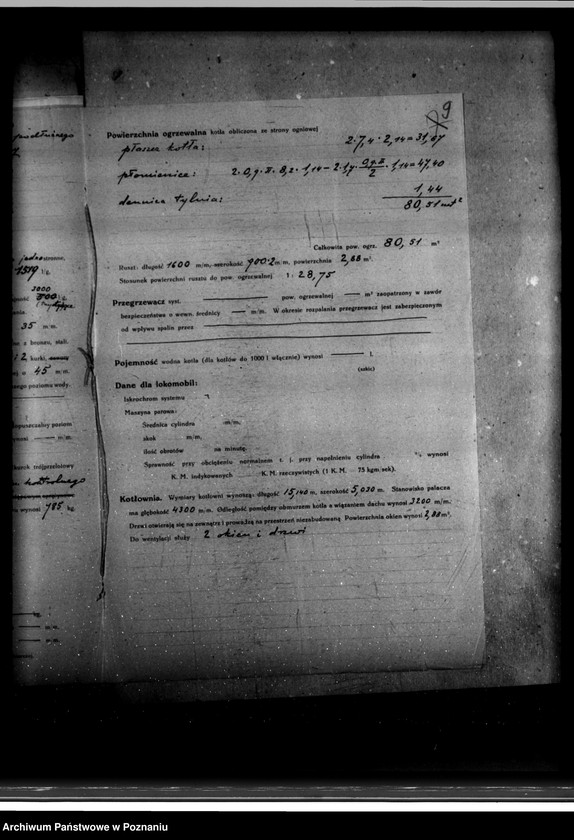 9
Powierzchnia ogrzewalna kotła obliczona ze strony ogniowej
płaszcz kotła: 2·7,4·2,14=31,67
płomienice: 2·0,9·π·8,2·1,14-2·1,4·0,9π/2·1,14=47,40
dennica tylnia: 1,44
80,51 mt²
Całkowita pow. ogrz. 80,51 m²
Ruszt: długość 1600 m/m, szerokość 900·2 m/m, powierzchnia 2,88 m².
Stosunek powierzchni rusztu do pow. ogrzewalnej 1 : 28,75
Przegrzewacz syst. pow. ogrzewalnej — m² zaopatrzony w zawór
bezpieczeństwa o wewn. średnicy — m/m. W okresie rozpalania przegrzewacz jest zabezpieczonym
od wpływu spalin przez
Pojemność wodna kotła (dla kotłów do 1000 l włącznie) wynosi — l.
Dane dla lokomobil:
Iskrochron systemu
Maszyna parowa:
Średnica cylindra m/m,
skok m/m,
ilość obrotów na minutę.
Sprawność przy obciążeniu normalnem t. j. przy napełnieniu cylindra % wynosi
K. M. indykowanych K. M. rzeczywistych (1 K. M. — 75 kgm/sek).
Kotłownia. Wymiary kotłowni wynoszą: długość 15,140 m, szerokość 5,030 m. Stanowisko palacza
ma głębokość 4300 m/m. Odległość pomiędzy obmurzem kotła a wiązaniem dachu wynosi 3200 m/m.
Drzwi otwierają się na zewnątrz i prowadzą na przestrzeń niezabudowaną Powierzchnia okien wynosi 2,88 m².
Do wentylacji służy 2 okien i drzwi
1519 l/g.
3000
35 m/m.
z bronzu, stali.
2 kurki,
45 m/m.
poziomu wody.
dopuszczalny poziom
wynosi — m/m.
kontrolnego
wynosi 785 kg.
kg.
m/m.
m/m.
Archiwum Państwowe w Poznaniu